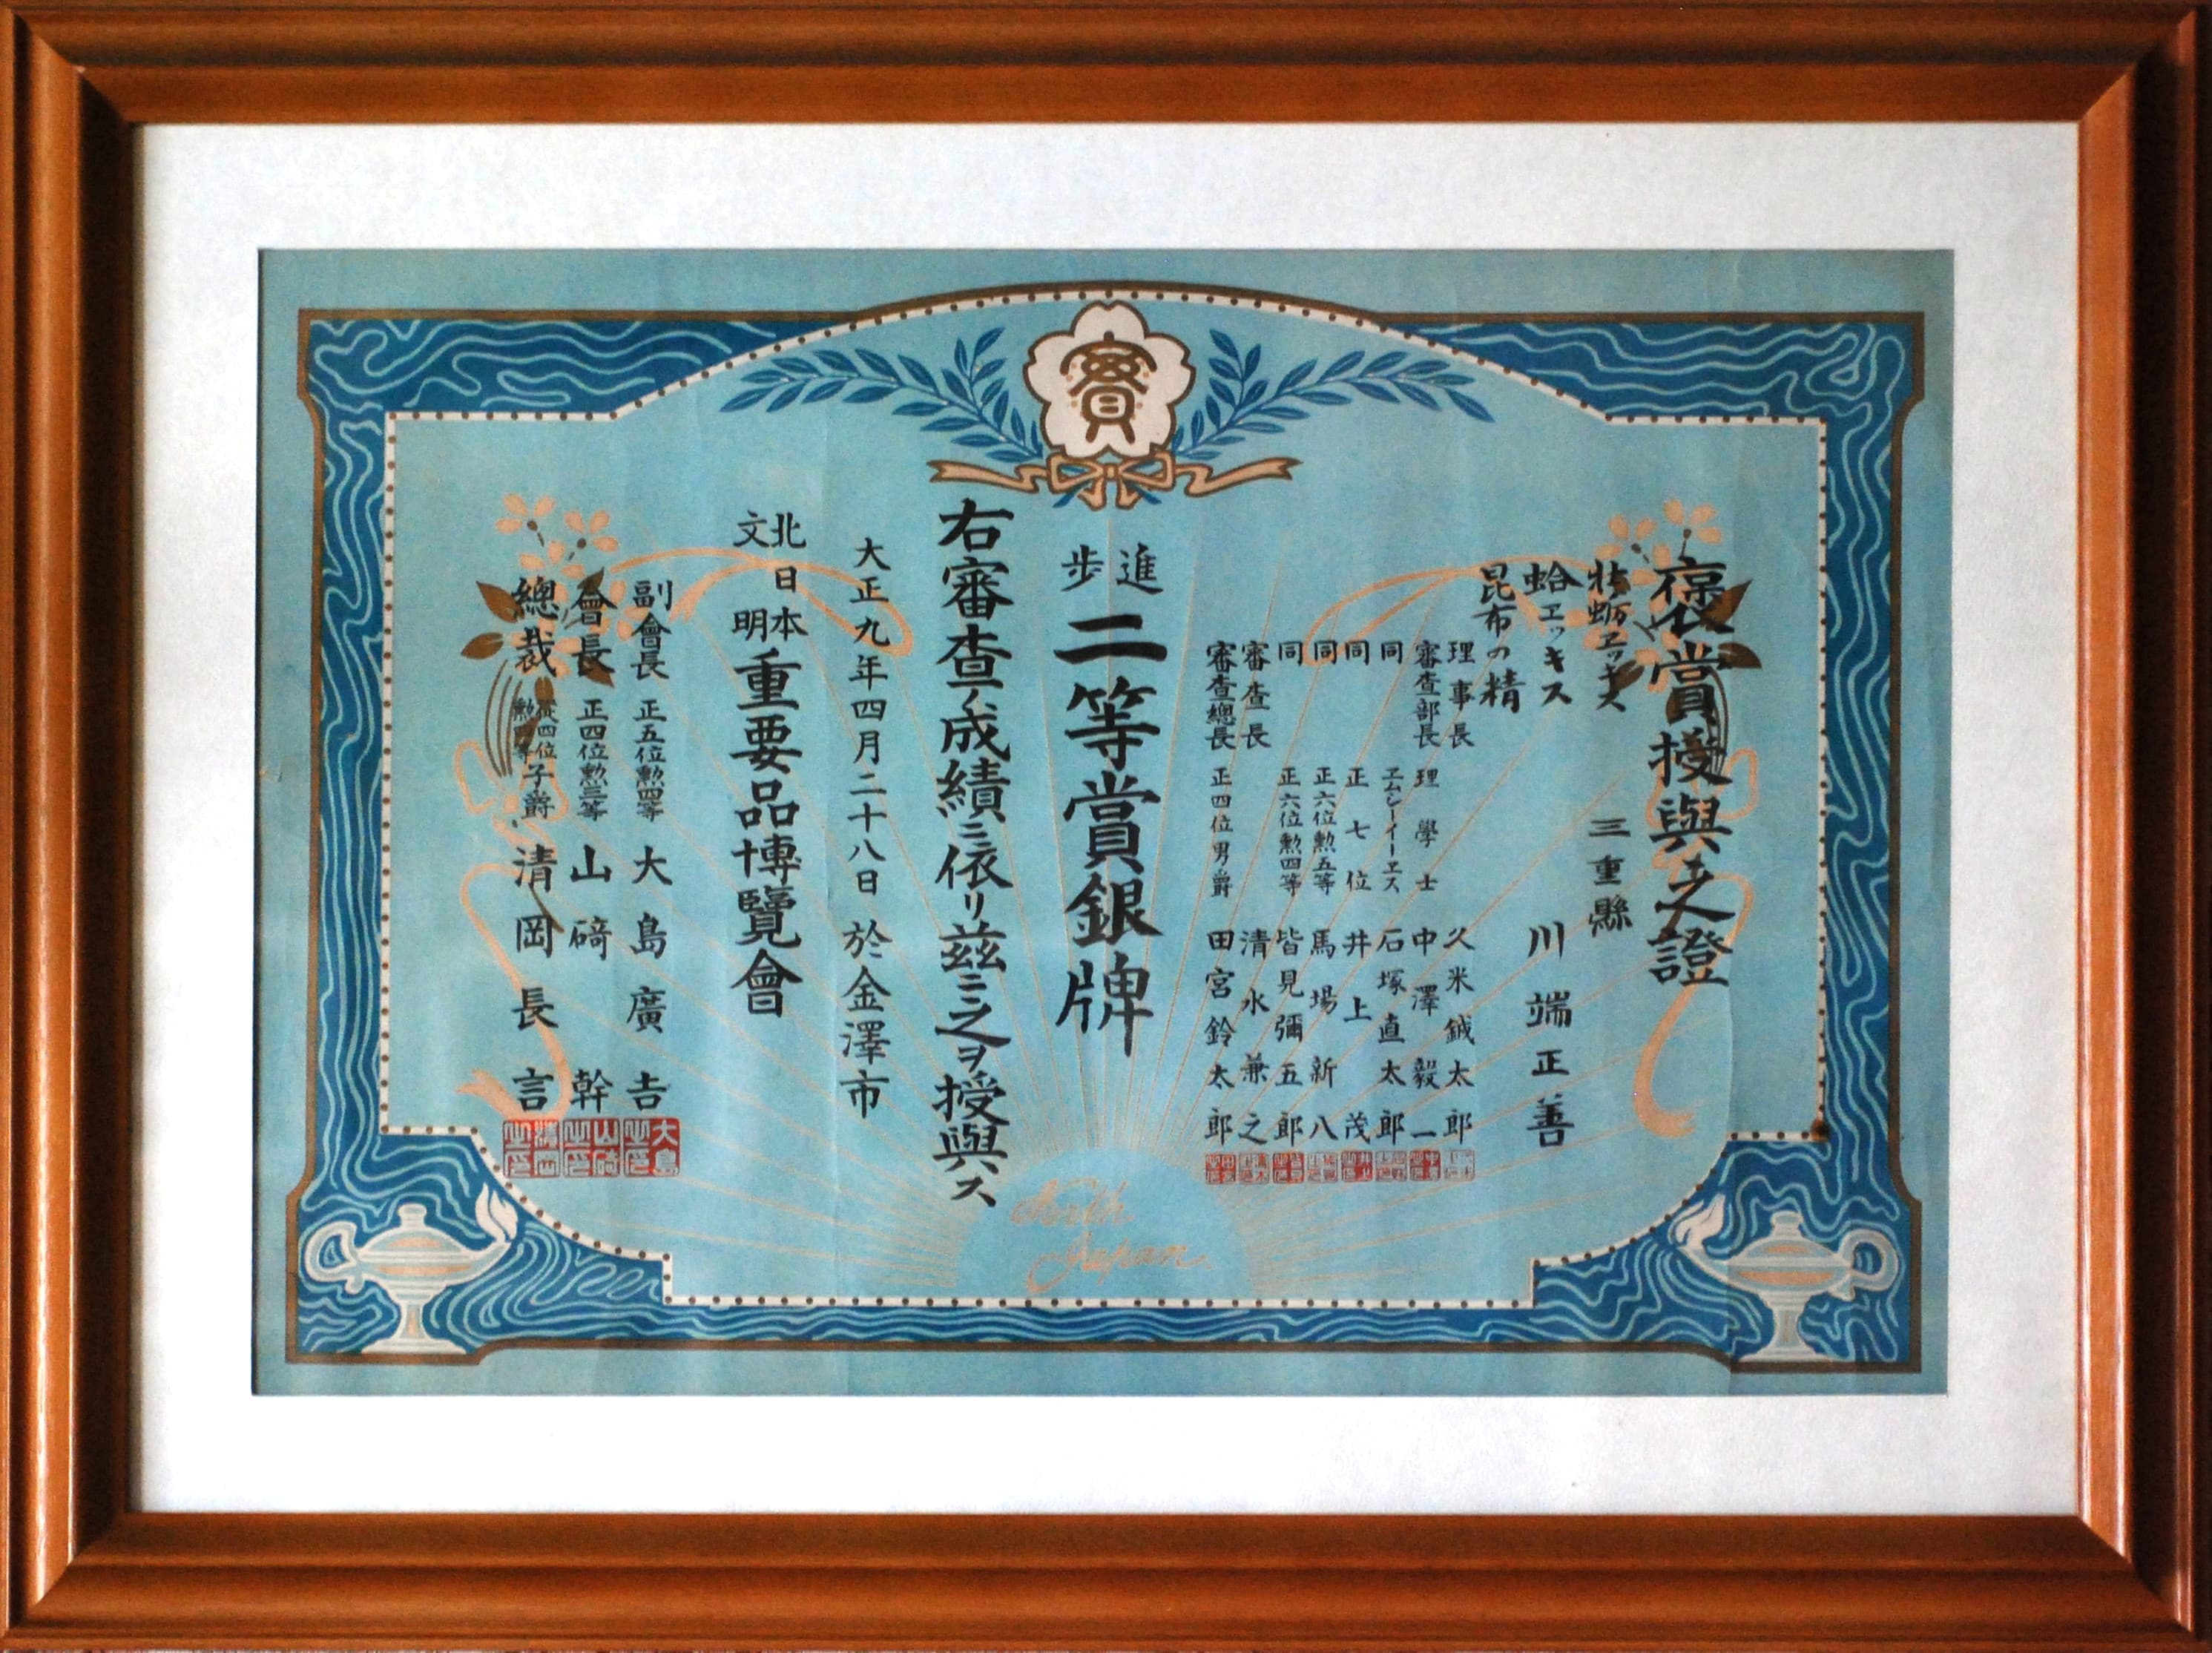 賞
褒賞授與之證
牡蛎エッキス
蛤エッキス
昆布の精
三重縣
川端正善
理事長 久米鉞太郎
審査部長 理學士 中澤毅一
同 エムシーイーエス 石塚直太郎
同 正七位 井上茂
同 正六位勲五等 馬場新八
同 正六位勲四等 皆見彌五郎
審査長 清水兼之
審査總長 正四位男爵 田宮鈴太郎
進歩 二等賞銀牌
右審査ノ成績ニ依リ茲ニ之ヲ授與ス
大正九年四月二十八日 於金澤市
北日本文明重要品博覽會
副會長 正五位勲四等 大島廣吉
會長 正四位勲三等 山碕幹
總裁 從四位勲四等子爵 清岡長言
North
Japan.